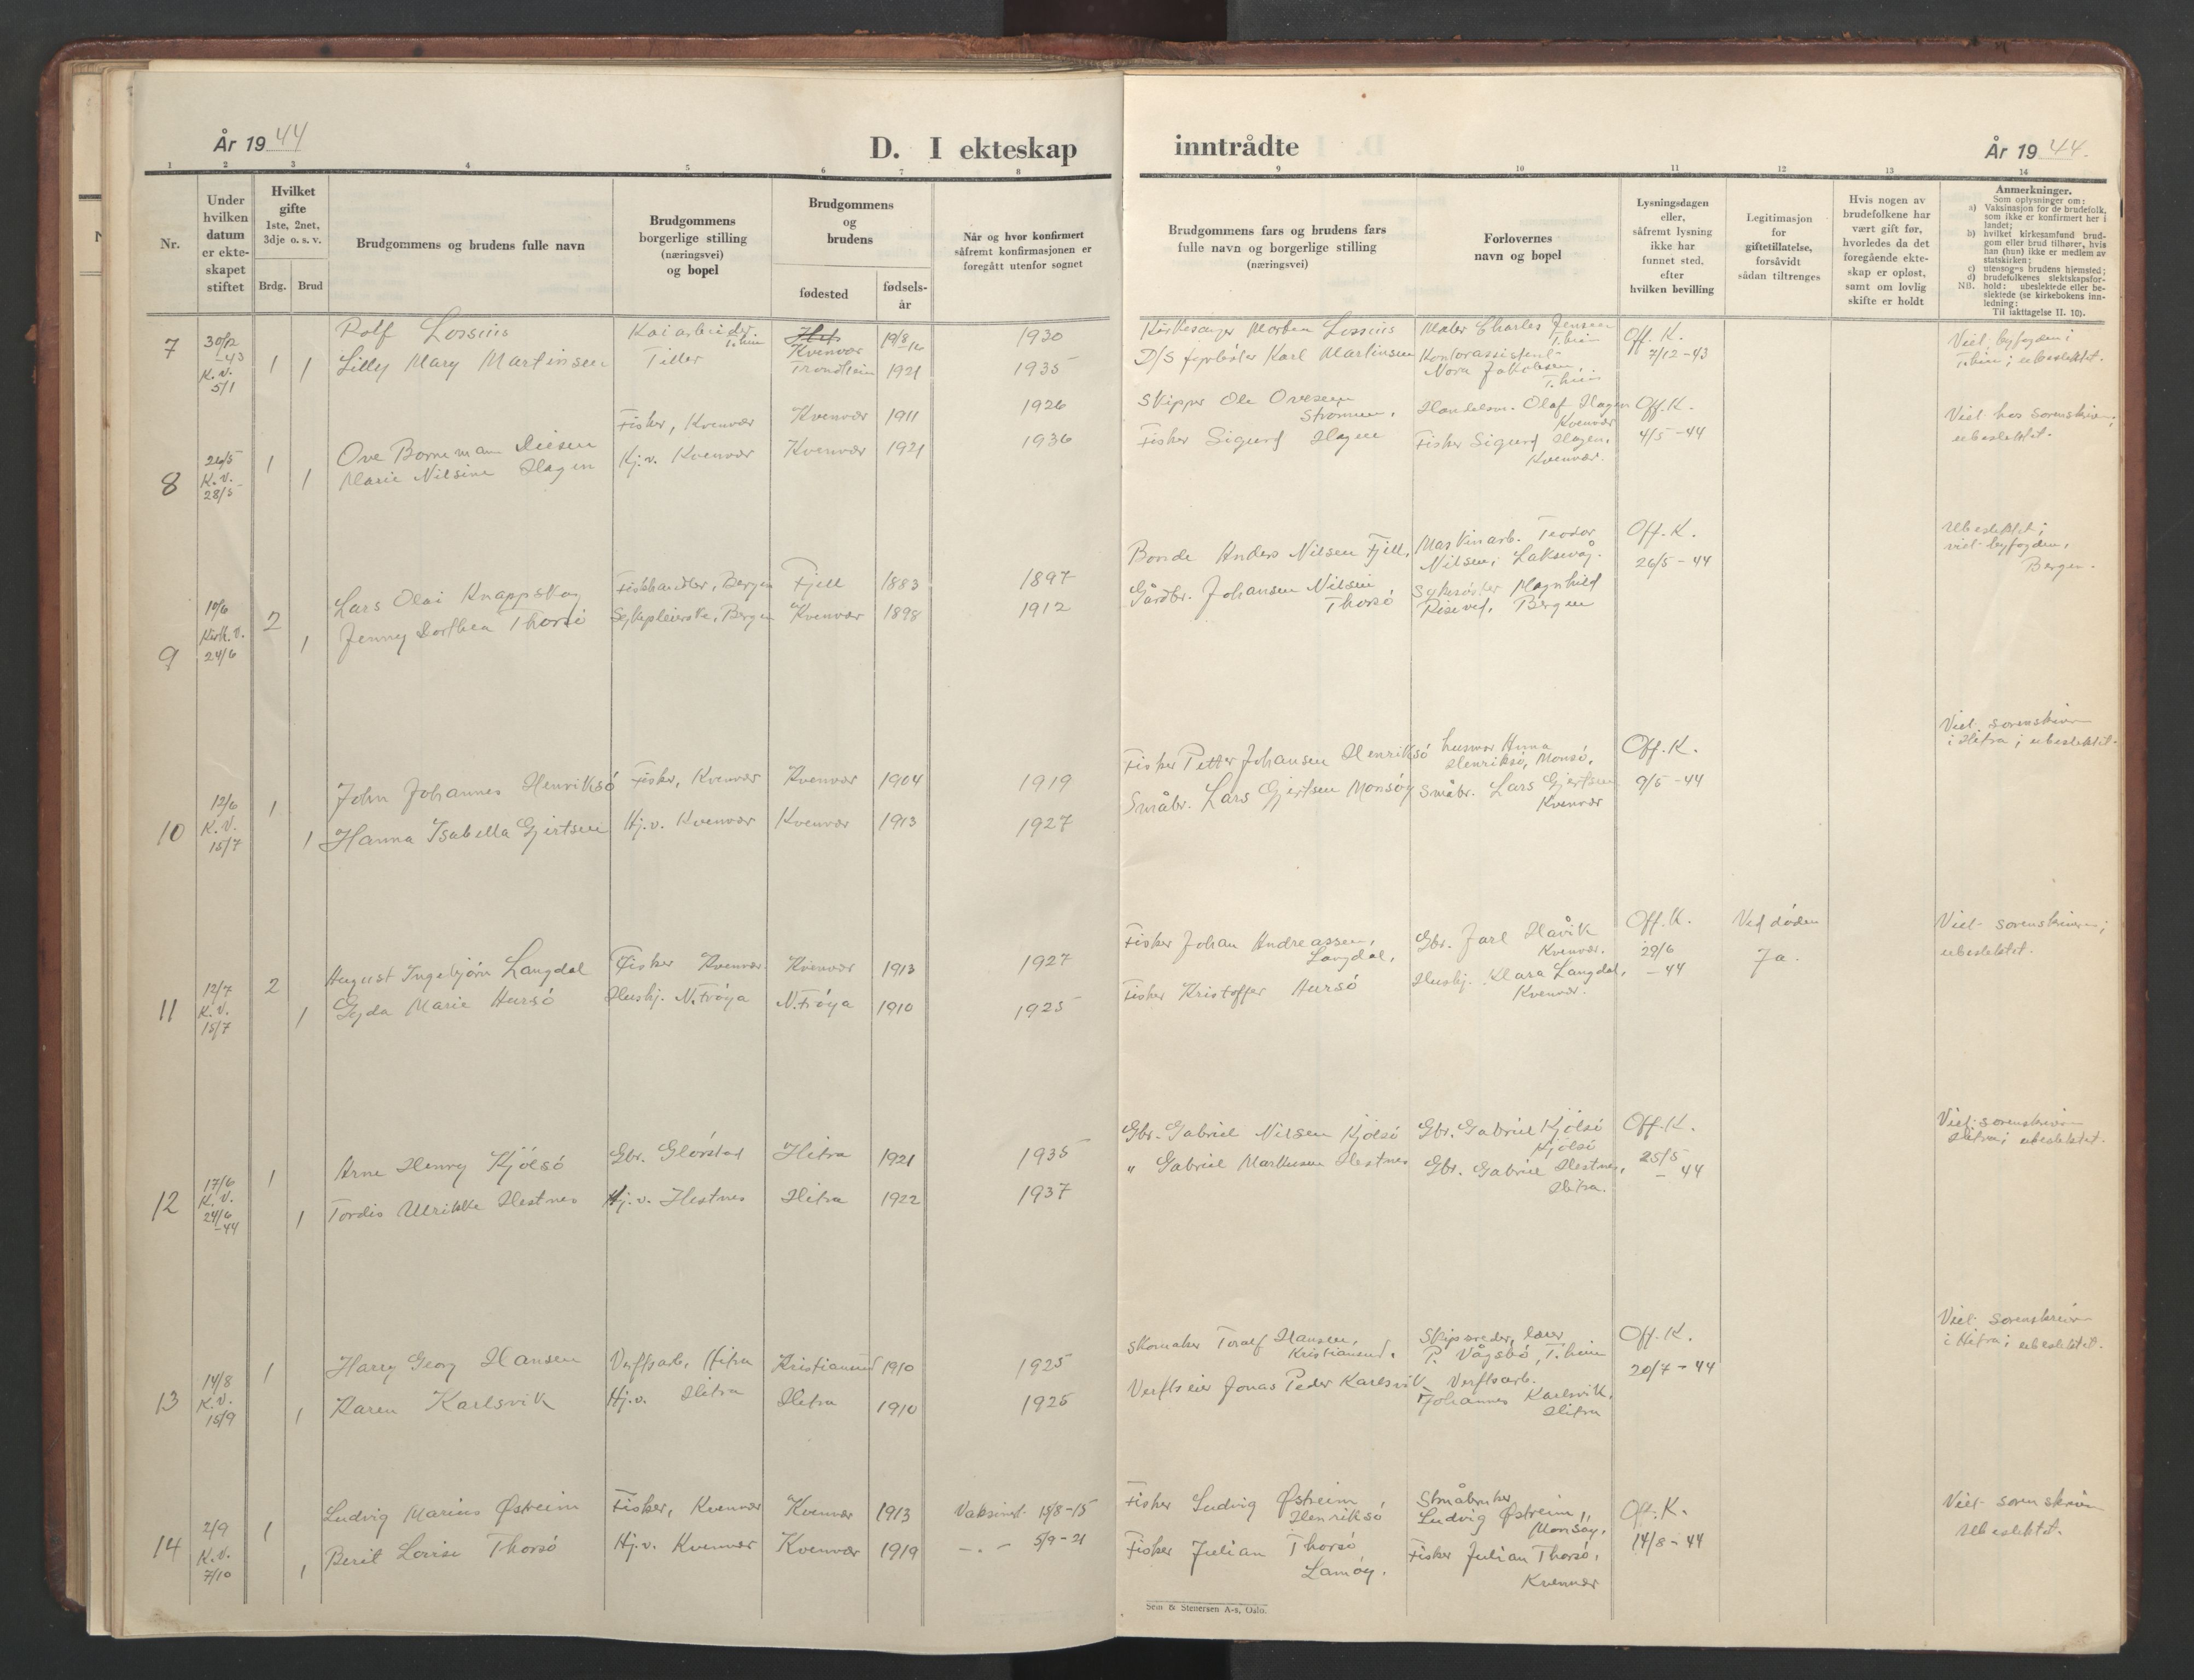 År 19 44
D. I ekteskap
inntrådte
År 19 44.
1 2 3 4 5 6 7 8 9 10 11 12 13 14
Nr.
Under
hvilken
datum
er ekte-
skapet
stiftet
Hvilket
gifte
1ste, 2net,
3dje o. s. v.
Brdg. Brud
Brudgommens og brudens fulle navn
Brudgommens
borgerlige stilling
(næringsvei)
og bopel
Brudgommens
og
brudens
fødested
fødsels-
år
Når og hvor konfirmert
såfremt konfirmasjonen er
foregått utenfor sognet
Brudgommens fars og brudens fars
fulle navn og borgerlige stilling
(næringsvei)
Forlovernes
navn og bopel
Lysningsdagen
eller,
såfremt lysning
ikke har
funnet sted,
efter
hvilken bevilling
Legitimasjon
for
giftetillatelse,
forsåvidt
sådan tiltrenges
Hvis nogen av
brudefolkene har
vært gift før,
hvorledes da det
foregående ekte-
skap er opløst,
samt om lovlig
skifte er holdt
Anmerkninger.
Som oplysninger om:
a) Vaksinasjon for de brudefolk,
som ikke er konfirmert her i
landet;
b) hvilket kirkesamfund brud-
gom eller brud tilhører, hvis
han (hun) ikke er medlem av
statskirken;
c) utensogns brudens hjemsted;
d) brudefolkenes slektskapsfor-
hold: ubeslektede eller be-
NB. slektede (se kirkebokens inn-
ledning:
Til iakttagelse II. 10).
7
30/12
-43
K.V.
5/1
1 1
Rolf Lossius
Lilly Mary Martinsen
Kaiarbeider
T.heim
Tiller
Kvenvær
Trondheim
19/8 16
1921
1930
1935
Kirkesanger Morten Lossius
D/S fyrbøter Karl Martinsen
Maler Charles Jensen
T.heim
Kontorassistent
Nora Jakobsen,
T.heim
Off. K.
7/12-43
Viet byfogden i
T.heim; ubeslektet.
8
26/5
K.V.
28/5
1 1
Ove Bornemann
Marie Nilsine Hagen
Fisker, Kvenvær
Hj.v. Kvenvær
Kvenvær
Kvenvær
1911
1921
1926
1936
Skipper Ole Ovesen
Strømmen.
Fisker Sigurd Hagen
Handelsm. Olaf Hagen
Kvenvær
Fisker Sigurd Hagen,
Kvenvær.
Off. K.
4/5-44
Viet hos sorenskriver;
ubeslektet.
9
10/6
Kirk.V.
24/6
2 1
Lars Olai Knappskog
Jenny Dorthea Thorsö
Fiskhandler, Bergen
Sykepleierske, Bergen
Fjell
Kvenvær
1883
1898
1897
1912
Bonde Anders Nilsen Fjell,
Gårdbr. Johansen Nilsen
Thorsö
Maskinarb. Teodor
Nilsen, Laksevåg.
Sykesøster Magnhild
Riseved, Bergen
Off. K.
26/5-44
Ubeslektet;
viet byfogden,
Bergen.
10
12/6
K.V.
15/7
1 1
John Johannes Henriksö
Hanna Isabella Gjertsen
Fisker, Kvenvær
Hj.v. Kvenvær
Kvenvær
Kvenvær
1904
1913
1919
1927
Fisker Petter Johansen Henriksö
Småbr. Lars Gjertsen Monsöy
husmor Anna
Henriksö, Monsö,
Småbr. Lars Gjertsen
Kvenvær
Off. K.
9/5-44
Viet sorenskriver
i Hitra; ubeslektet.
11
12/7
K.V.
15/7
2 1
August Ingebjörn Langdal
Gyda Marie Aursö
Fisker Kvenvær
Hushj. N.Fröya
Kvenvær
N.Fröya
1913
1910
1927
1925
Fisker Johan Andreassen,
Langdal,
Fisker Kristoffer Aursö
Gbr. Jarl Håvik
Kvenvær.
Hushj. Klara Langdal,
Kvenvær.
Off. K.
29/6
-44
Ved döden
Ja.
Viet sorenskriveren;
ubeslektet.
12
17/6
K.V.
24/6
-44
1 1
Arne Henry Kjölsö
Tordis Ulrikke Hestnes
Gbr. Glörstad
Hj.v. Hestnes
Hitra
Hitra
1921
1922
1935
1937
Gbr. Gabriel Nilsen Kjölsö
" Gabriel Markussen Hestnes
Gbr. Gabriel Kjölsö
Kjölsö
Gbr. Gabriel Hestnes,
Hitra.
Off. K.
25/5
- 44
Viet sorenskriver
Hitra; ubeslektet.
13
14/8
K.V.
15/9
1 1
Harry Georg Hansen
Karen Karlsvik
Verftsarb. Hitra
Hj.v. Hitra
Kristiansund
Hitra
1910
1910
1925
1925
Skomaker Toralf Hansen,
Kristiansund.
Verftseier Jonas Peder Karlsvik
Skipsreder,
P. Vågsbö, T.heim
Verftsarb.
Johannes Karlsvik,
Hitra
Off. K.
20/7-44
Viet sorenskriver
i Hitra; ubeslektet.
14
2/9
K.V.
7/10
1 1
Ludvig Marius Østreim
Berit Lovise Thorsö
Fisker, Kvenvær
Hj.v. Kvenvær
Kvenvær
Kvenvær
1913
1919
Vaksinert 18/8-15
-"- 5/9-21
Fisker Ludvig Østreim
Henriksö
Fisker Julian Thorsö
Lamöy.
Småbruker
Ludvig Østreim,
Monsöy.
Fisker Julian Thorsö,
Kvenvær
Off. K.
14/8-44
Viet sorenskriver
Ubeslektet.
Sem & Stenersen A-s, Oslo.